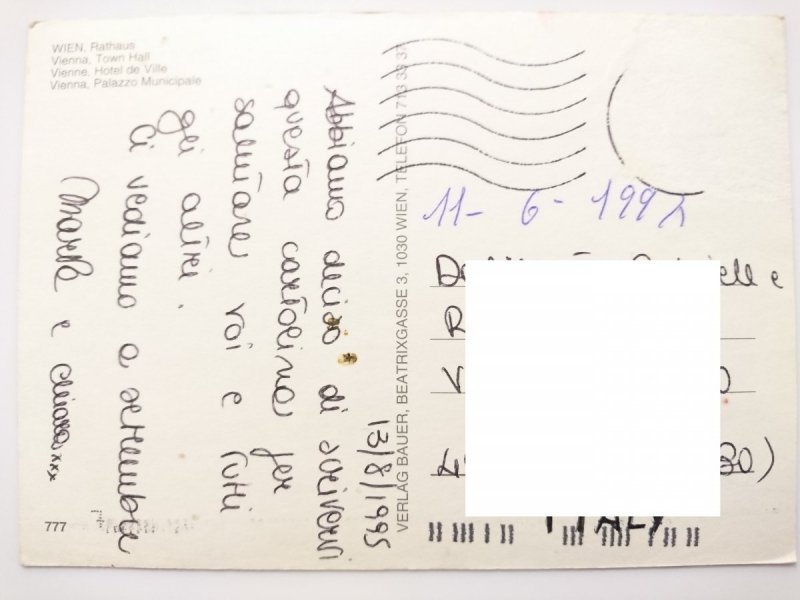 WIEN, Rathaus
Vienna, Town Hall
Vienne, Hotel de Ville
Vienna, Palazzo Municipale
13/8/1995
Abbiamo deciso di scrivervi
questa cartolina per
salutare voi e tutti
gli altri.
Ci vediamo a settembre
Marta e Chiara xxx
777
VERLAG BAUER, BEATRIXGASSE 3, 1030 WIEN, TELEFON 713 33 37
11- 6 - 199
e
ITALY